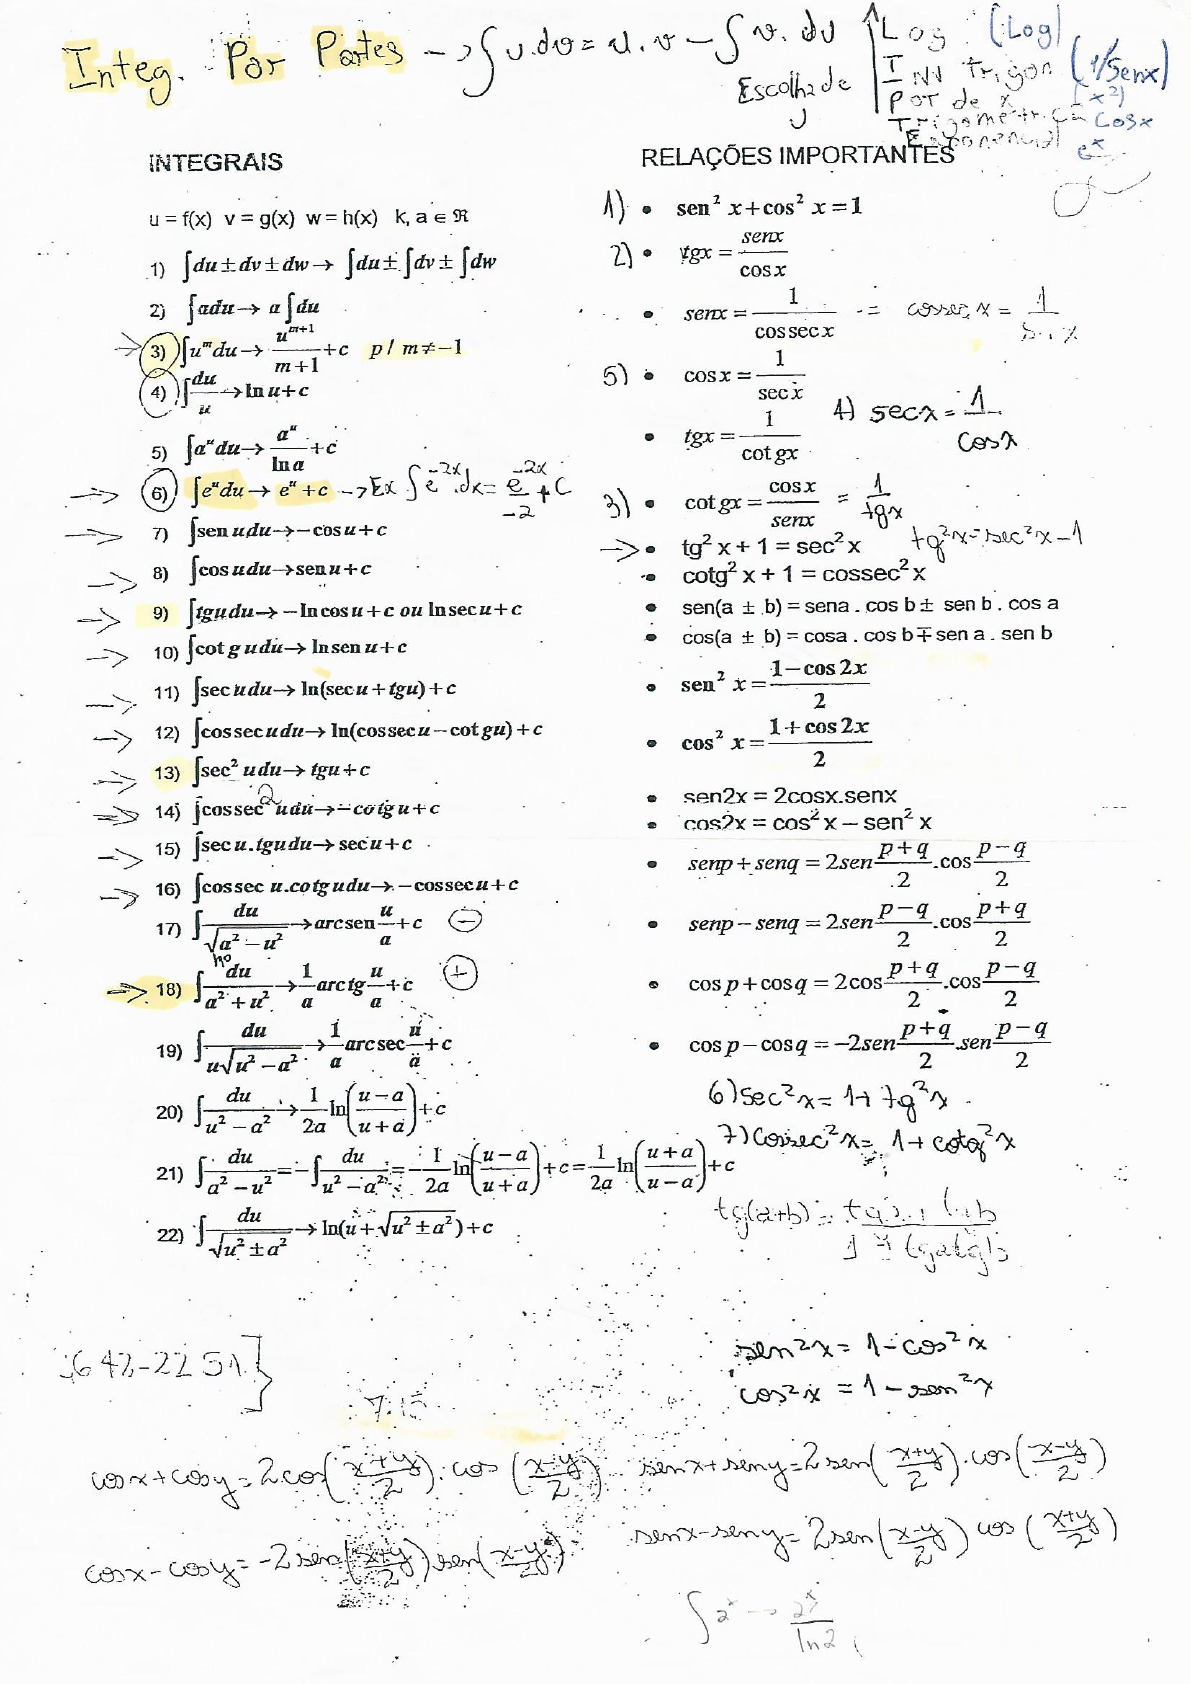 Integ. Por Partes → ∫u.dv = u.v − ∫v.du
Escolha de u
Log (Log)
Inv trigon (1/senx)
Pot de x (x²)
Trigometrica cosx
Exponencial eˣ
INTEGRAIS
u = f(x) v = g(x) w = h(x) k, a ∈ ℜ
1) ∫du ± dv ± dw → ∫du ± ∫dv ± ∫dw
2) ∫adu → a∫du
3) ∫uᵐdu → uᵐ⁺¹/(m+1) + c p/ m ≠ −1
4) ∫du/u → ln u + c
5) ∫aᵘdu → aᵘ/ln a + c
6) ∫eᵘdu → eᵘ + c → Ex ∫e⁻²ˣ.dx = e⁻²ˣ/−2 + C
7) ∫sen udu → −cos u + c
8) ∫cos udu → sen u + c
9) ∫tgudu → −ln cos u + c ou ln sec u + c
10) ∫cot gudu → ln sen u + c
11) ∫sec udu → ln(sec u + tgu) + c
12) ∫cos sec udu → ln(cos sec u − cot gu) + c
13) ∫sec² udu → tgu + c
14) ∫cos sec² udu → −cotg u + c
15) ∫sec u.tgudu → sec u + c
16) ∫cos sec u.cotgudu → −cos sec u + c
17) ∫du/√(a² − u²) → arcsen u/a + c (−)
18) ∫du/(a² + u²) → 1/a arctg u/a + c (+)
nº
19) ∫du/(u√(u² − a²)) → 1/a arcsec u/a + c
20) ∫du/(u² − a²) → 1/2a ln((u − a)/(u + a)) + c
21) ∫du/(a² − u²) = −∫du/(u² − a²) = −1/2a ln((u − a)/(u + a)) + c = 1/2a ln((u + a)/(u − a)) + c
22) ∫du/√(u² ± a²) → ln(u + √(u² ± a²)) + c
RELAÇÕES IMPORTANTES
1) • sen² x + cos² x = 1
2) • tgx = senx/cos x
• senx = 1/cos sec x = cossec x = 1/sen x
5) • cos x = 1/sec x 4) sec x = 1/cosx
• tgx = 1/cot gx
3) • cot gx = cos x/senx = 1/tgx
→ • tg² x + 1 = sec² x tg²x = sec²x − 1
• cotg² x + 1 = cossec² x
• sen(a ± b) = sena . cos b ± sen b . cos a
• cos(a ± b) = cosa . cos b ∓ sen a . sen b
• sen² x = (1 − cos 2x)/2
• cos² x = (1 + cos 2x)/2
• sen2x = 2cosx.senx
• cos2x = cos² x − sen² x
• senp + senq = 2sen (p + q)/2 .cos (p − q)/2
• senp − senq = 2sen (p − q)/2 .cos (p + q)/2
• cos p + cos q = 2cos (p + q)/2 .cos (p − q)/2
• cos p − cos q = −2sen (p + q)/2 .sen (p − q)/2
6) sec²x = 1 + tg²x
7) cossec²x = 1 + cotg²x
tg(a+b) =
sen²x = 1 − cos²x
cos²x = 1 − sen²x
642-2251
7:15
cosx + cosy = 2cos((x+y)/2).cos((x−y)/2)
senx + seny = 2sen((x+y)/2).cos((x−y)/2)
cosx − cosy = −2sen((x+y)/2)sen((x−y)/2)
senx − seny = 2sen((x−y)/2) cos((x+y)/2)
∫2ˣ → 2ˣ/ln2